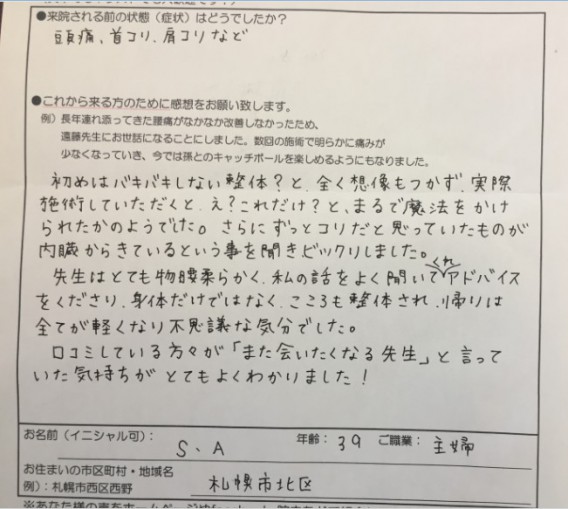 ●来院される前の状態（症状）はどうでしたか？
頭痛、首コリ、肩コリなど
●これから来る方のために感想をお願い致します。
例）長年連れ添ってきた腰痛がなかなか改善しなかったため、
遠藤先生にお世話になることにしました。数回の施術で明らかに痛みが
少なくなっていき、今では孫とのキャッチボールを楽しめるようにもなりました。
初めはバキバキしない整体？と、全く想像もつかず、実際
施術していただくと、え？これだけ？と、まるで魔法をかけ
られたかのようでした。さらにずっとコリだと思っていたものが
内臓からきているという事を聞きビックリしました。
先生はとても物腰柔らかく、私の話をよく聞いてくれアドバイス
をくださり、身体だけではなく、こころも整体され、帰りは
全てが軽くなり不思議な気分でした。
口コミしている方々が「また会いたくなる先生」と言って
いた気持ちがとてもよくわかりました！
お名前（イニシャル可）： S、A 年齢： 39 ご職業： 主婦
お住まいの市区町村・地域名
例）：札幌市西区西野 札幌市北区